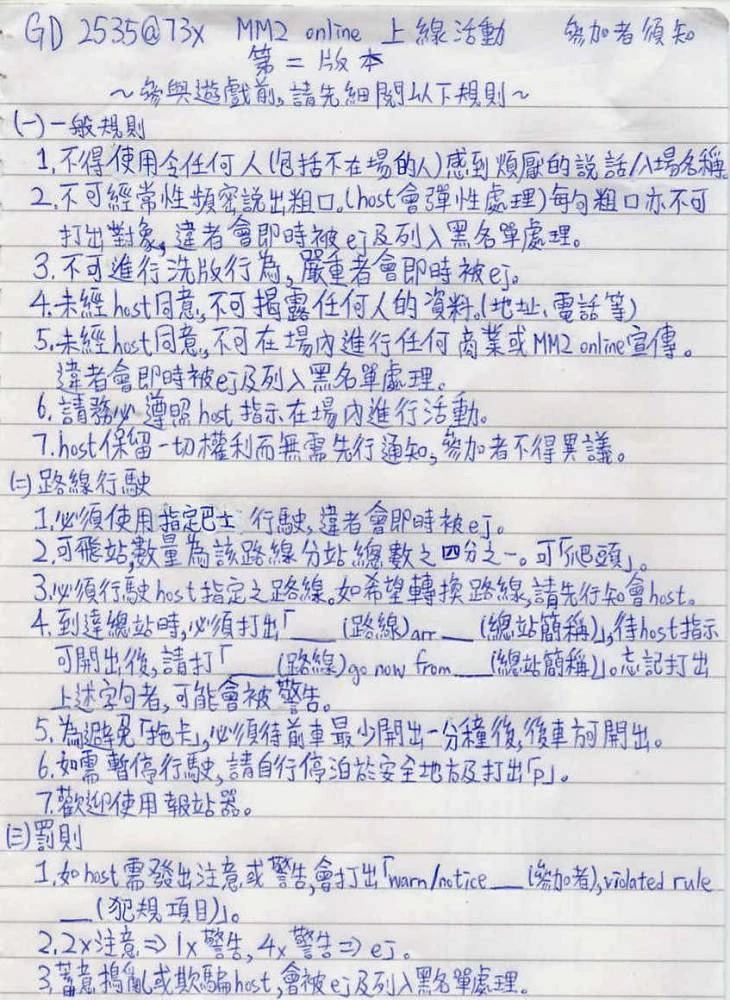 GD 2535@73X MM2 online 上線活動 參加者須知
第二版本
~參與遊戲前,請先細閱以下規則~
(一)一般規則
1.不得使用令任何人(包括不在場的人)感到煩厭的說話/入場名稱
2.不可經常性頻密說出粗口。(host會彈性處理)每句粗口亦不可
打出對象,違者會即時被ej及列入黑名單處理。
3.不可進行洗版行為,嚴重者會即時被ej。
4.未經host同意,不可揭露任何人的資料。(地址、電話等)
5.未經host同意,不可在場內進行任何商業或MM2 online宣傳。
違者會即時被ej及列入黑名單處理。
6.請務必遵照host指示在場內進行活動。
7.host保留一切權利而無需先行通知,參加者不得異議。
(二)路線行駛
1.必須使用指定巴士行駛,違者會即時被ej。
2.可飛站,數量為該路線分站總數之四分之一。可「爬頭」。
3.必須行駛host指定之路線。如希望轉換路線,請先行知會host。
4.到達總站時,必須打出「___(路線)arr___(總站簡稱)」,待host指示
可開出後,請打「___(路線)go now from___(總站簡稱)」。忘記打出
上述字句者,可能會被警告。
5.為避免「拖卡」,必須待前車最少開出一分鐘後,後車方可開出。
6.如需暫停行駛,請自行停泊於安全地方及打出「p」。
7.歡迎使用報站器。
(三)罰則
1.如host需發出注意或警告,會打出「warn/notice___(參加者),violated rule
___(犯規項目)」。
2.2x注意⇒1x警告,4x警告⇒ej。
3.蓄意搗亂或欺騙host,會被ej及列入黑名單處理。